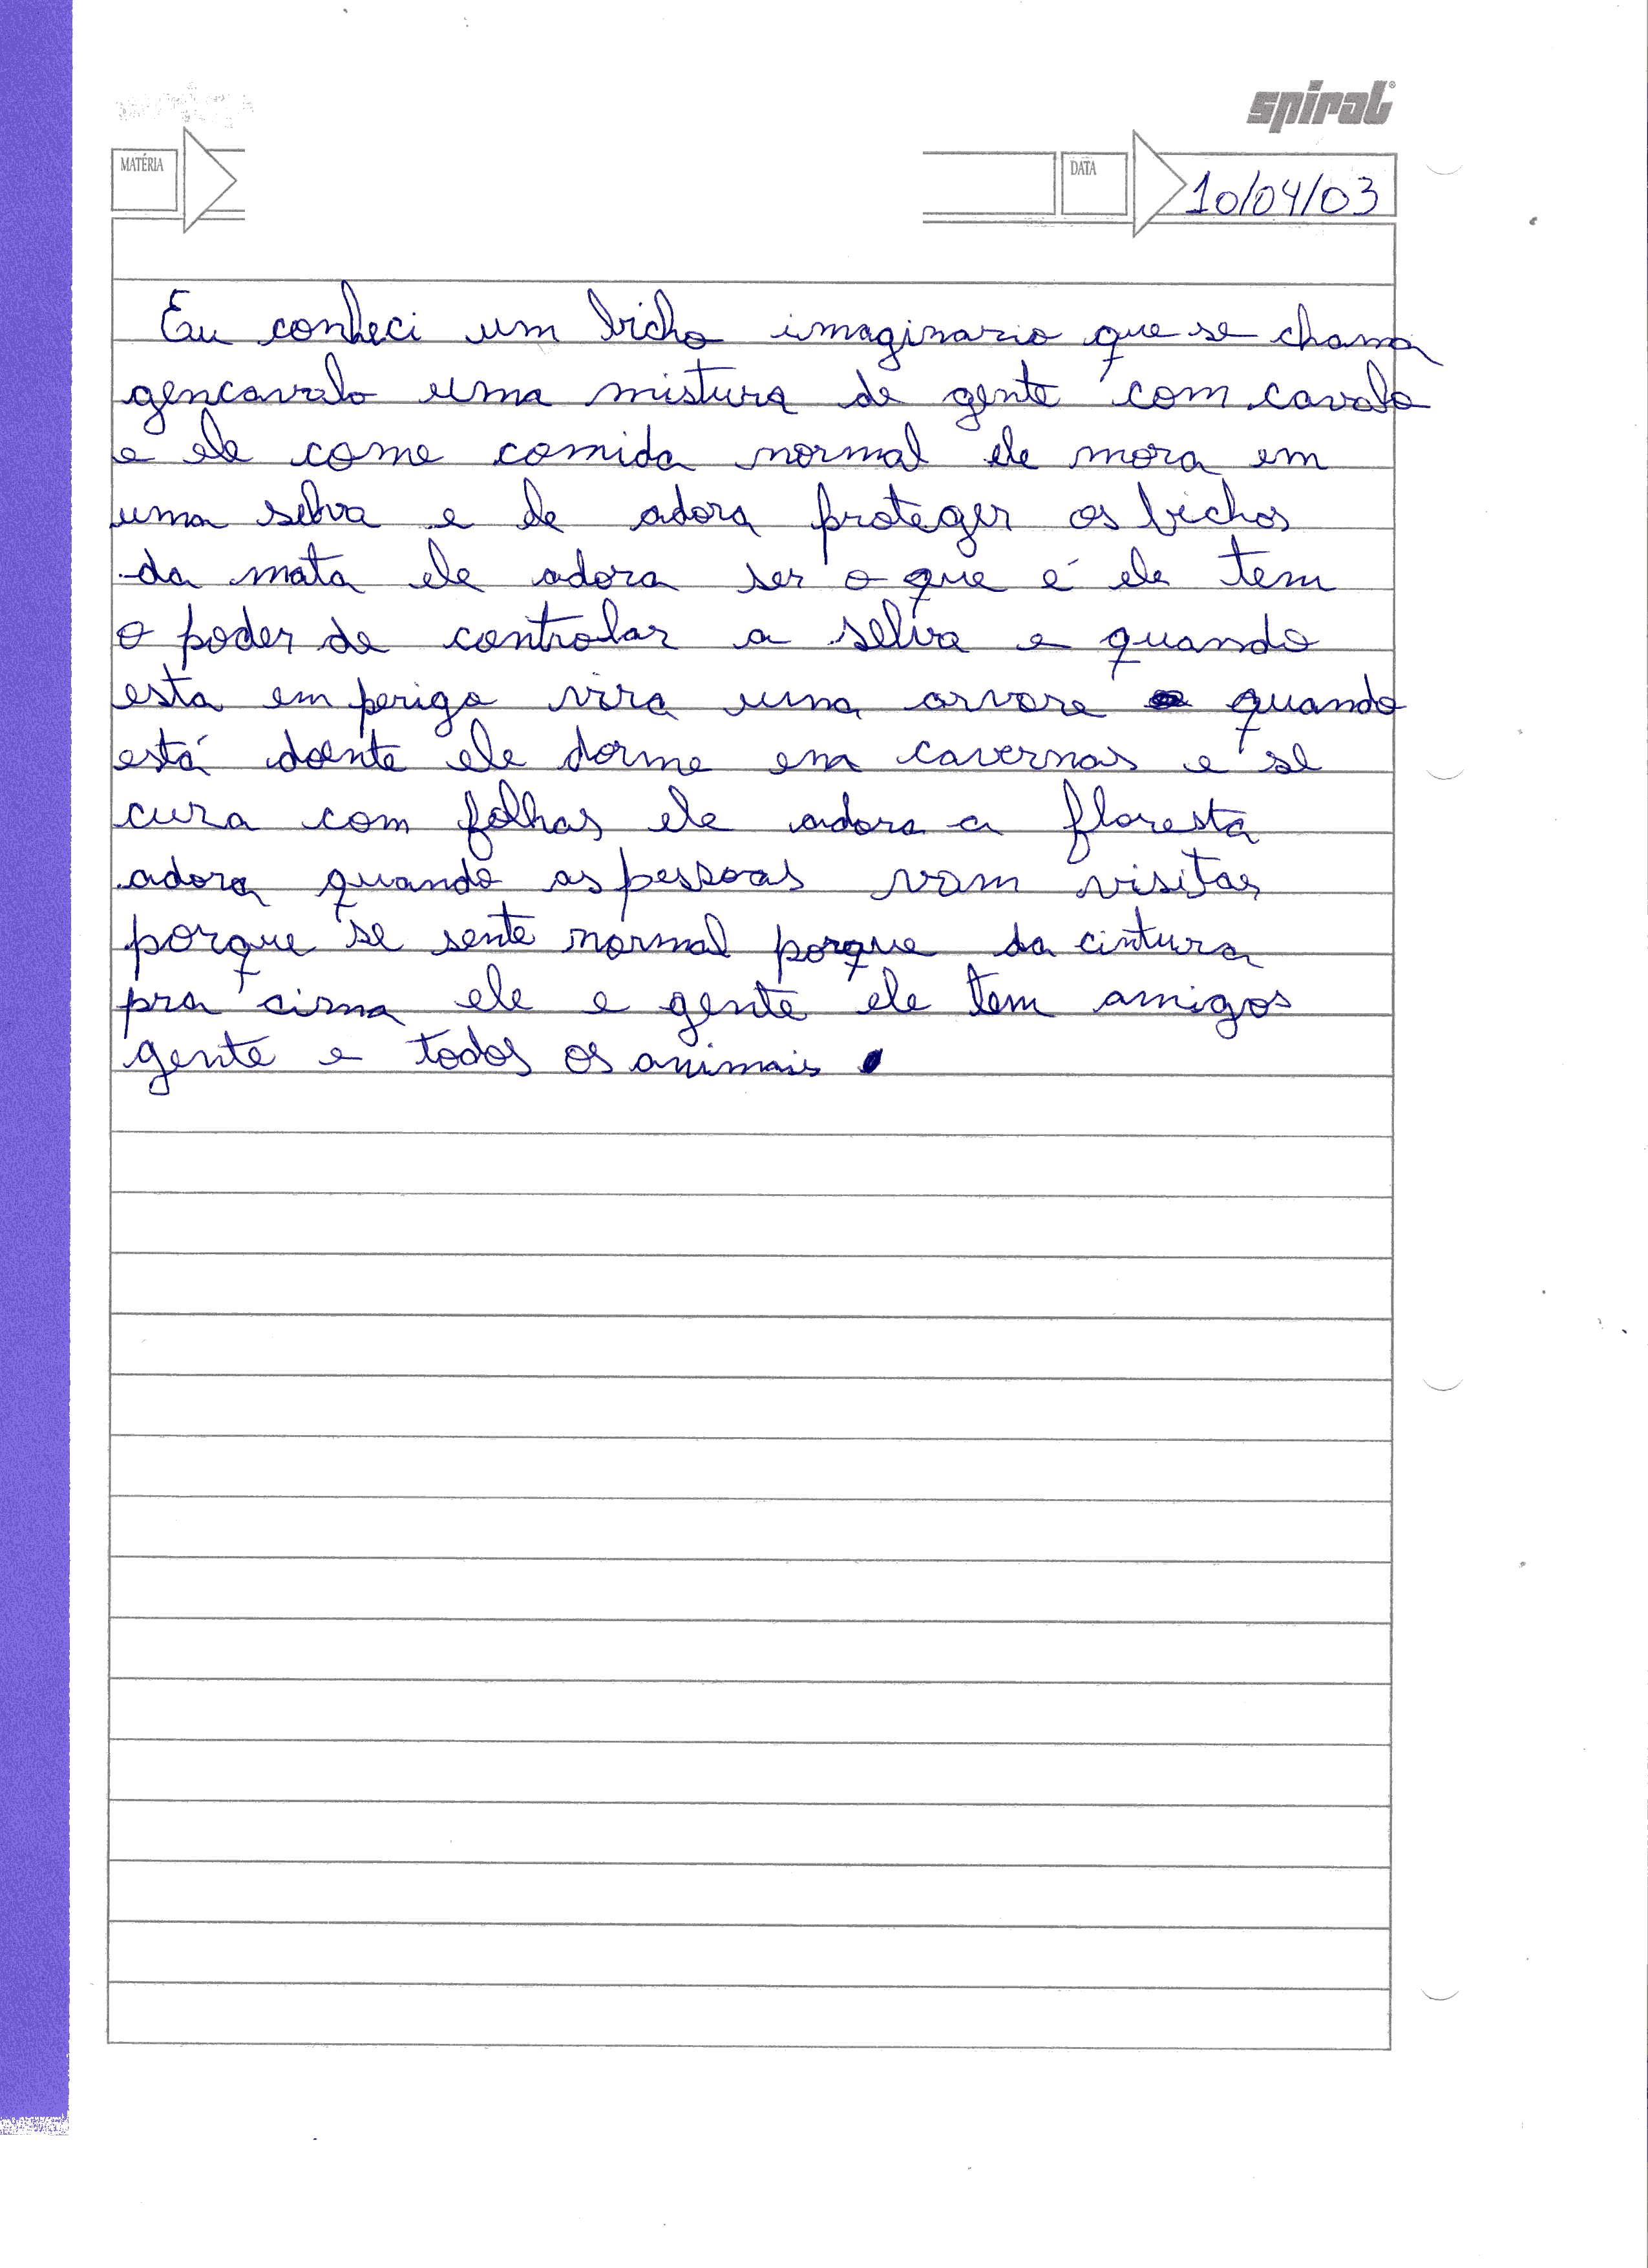 spiral®
MATÉRIA
DATA 10/04/03
Eu conheci um bicho imaginario que se chama
gencavalo uma mistura de gente com cavalo
e ele come comida normal ele mora em
uma selva e ele adora proteger os bichos
da mata ele adora ser o que é ele tem
o poder de controlar a selva e quando
esta em perigo vira uma arvore quando
está doente ele dorme em cavernas e se
cura com folhas ele adora a floresta
adora quando as pessoas vam visitar
porque se sente normal porque da cintura
pra cima ele e gente ele tem amigos
gente e todos os animais.